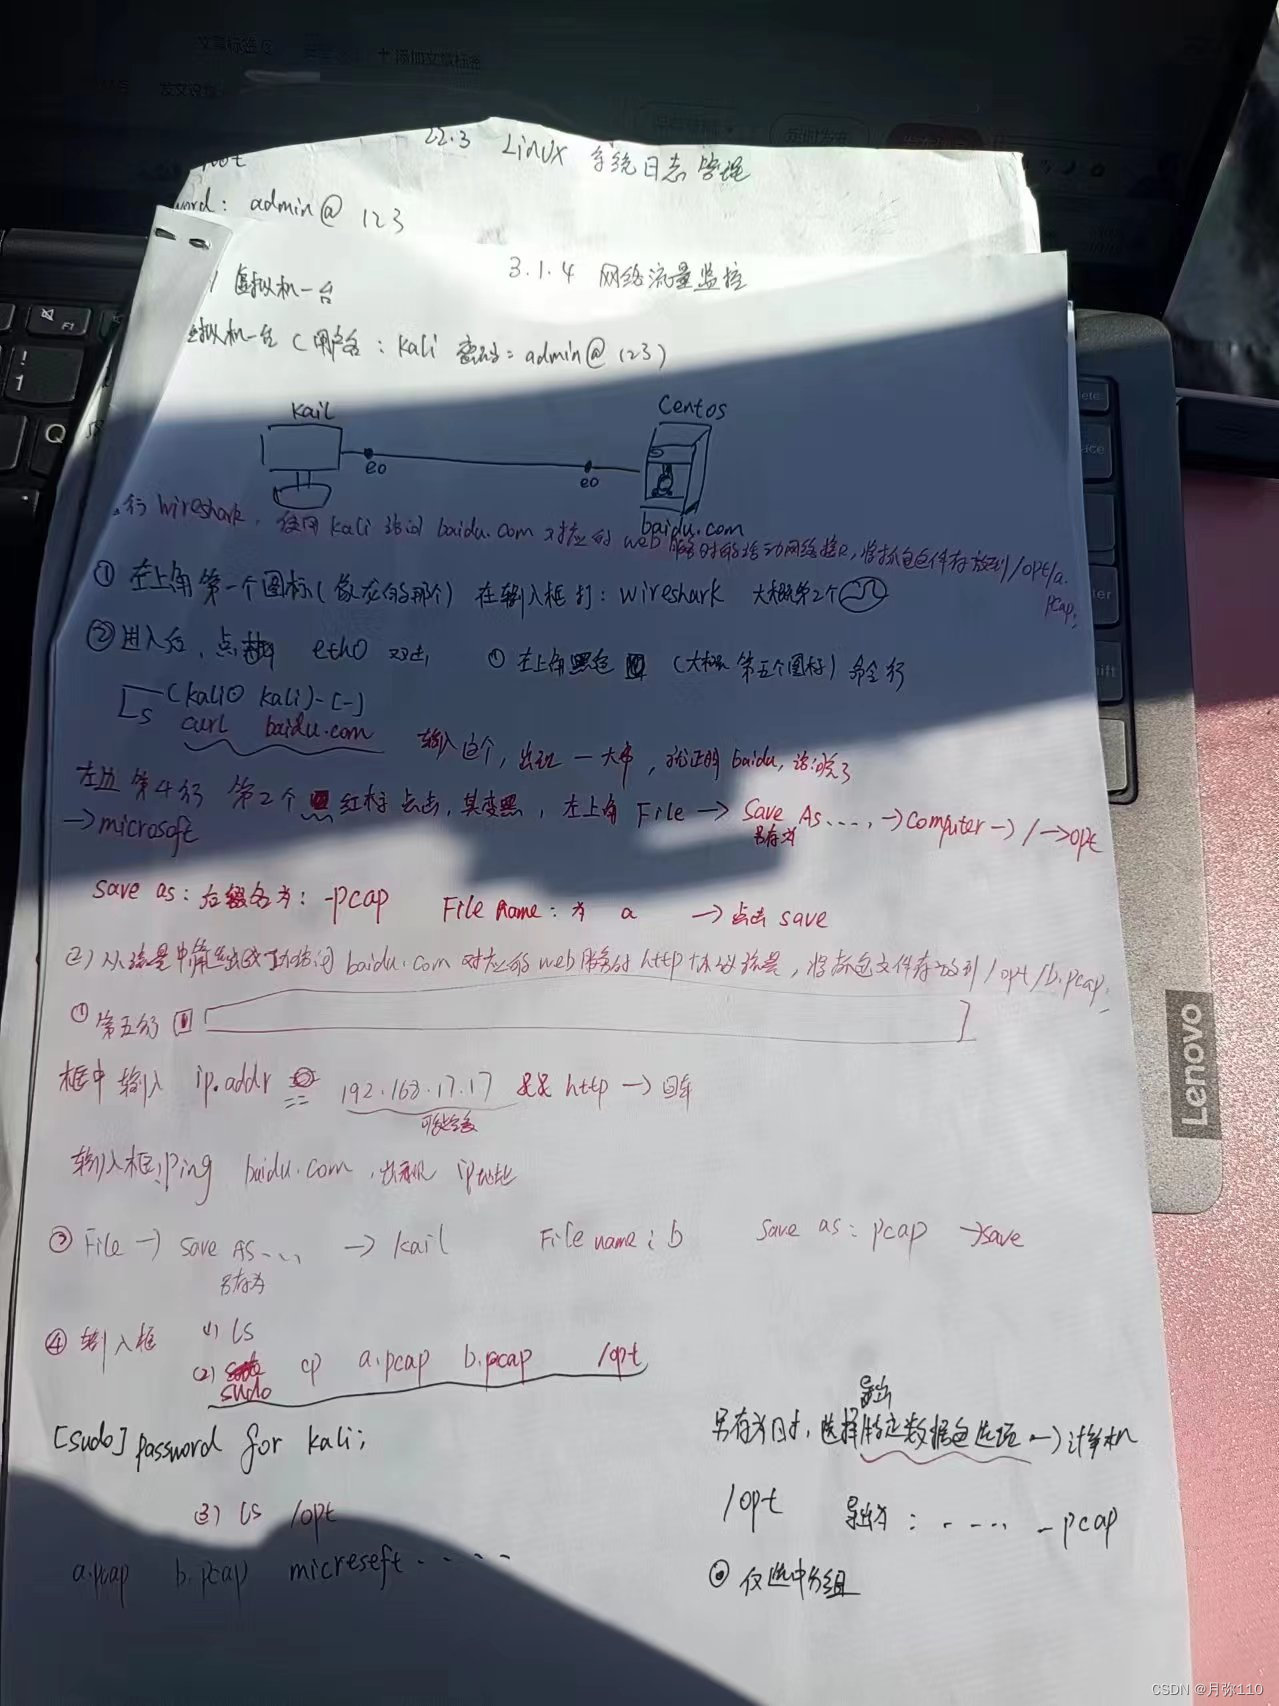 添加文章标签
发文设置
22.3 Linux 系统日志管理
word: admin@123
3.1.4 网络流量监控
虚拟机一台
虚拟机一台(用户名:kali 密码:admin@123)
Kail
Centos
e0
e0
baidu.com
行wireshark,使用kali访问baidu.com对应的web服务时的活动网络接口,将抓包文件存放到/opt/a.pcap;
① 左上角第一个图标( 的那个) 在输入框打:wireshark 大概第2个
② 进入后,点击 eth0 双击, ① 左上角黑色 (大概第五个图标)命令行
(kali⊙kali)-[-]
curl baidu.com
输入这个,出现一大串,就证明baidu,访问完了
左边第4行 第2个 红标点击,其变黑,左上角File → Save As...., → Computer → / → opt
另存为
→ microsoft
save as:后缀名为:-pcap File name:为 a → 点击save
2)从流量中筛选出成功访问baidu.com对应的web服务的http协议流量,将抓包文件存放到/opt/b.pcap;
① 第五行
框中输入 ip.addr == 192.168.17.17 && http → 回车
可能会变
输入框:ping baidu.com,出现ip地址
③ File → Save As.... → kail File name:b Save as:pcap → save
另存为
④ 输入框 (1) ls
(2) sudo cp a.pcap b.pcap /opt
[sudo] password for kali:
(3) ls /opt
a.pcap b.pcap micreseft.....
导出
另存为时,选择特定数据包选项 → 计算机
/opt 导出为:..... -pcap
⊙ 仅选中分组
Lenovo
CSDN @月弥110